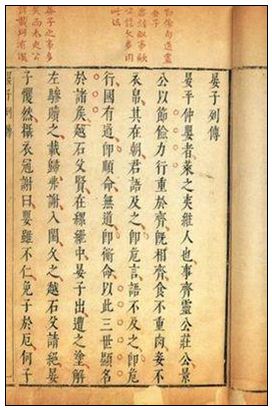 晏子列傳
晏平仲嬰者萊之夷維人也事齊靈公莊公景
公以節儉力行重於齊既相齊食不重肉妾不
衣帛其在朝君語及之即危言語不及之即危
行國有道即順命無道即衡命以此三世顯名
於諸矦越石父賢在縲紲中晏子出遭之塗解
左驂贖之載歸弗謝入閨久之越石父請絕晏
子戄然攝衣冠謝曰嬰雖不仁免子於厄何子
晏子之事多
矣而太史公
晏子列傳